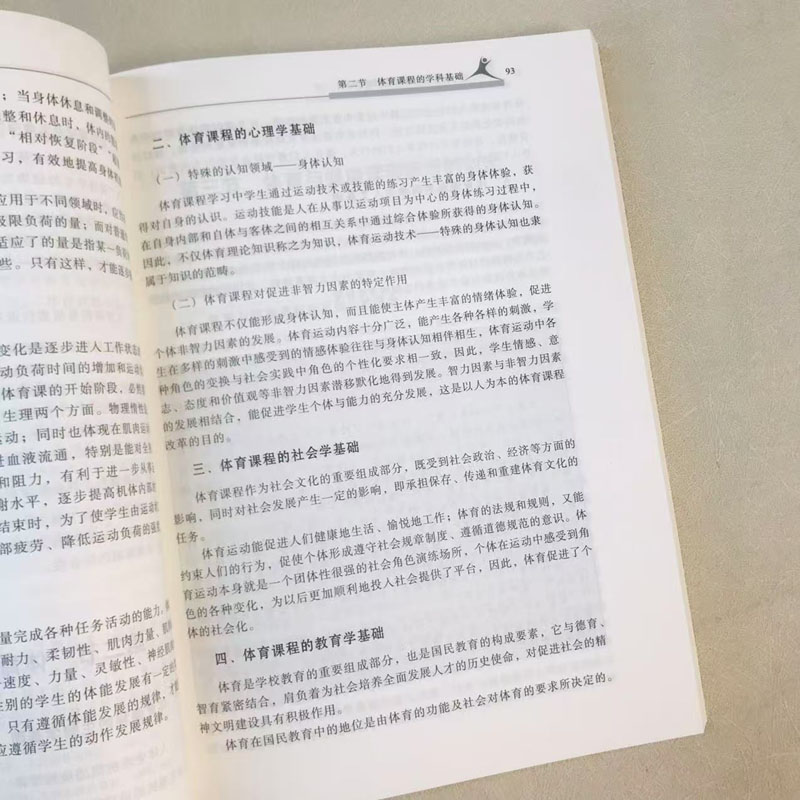 ；当身体休息和调整的
整和休息时，体内的
“相对恢复阶段”，
习，有效地提高身体
应用于不同领域时，应
极限负荷的量；而对普通
适应了的量是指某一负荷
些。只有这样，才能逐步
变化是逐步进入工作状态
动负荷时间的增加和运动
体育课的开始阶段，必然
生理两个方面。物理惰性
运动；同时也体现在肌肉运
进血液流通，特别是能对全
和阻力，有利于进一步从事
谢水平，逐步提高机体内部
结束时，为了使学生由运动
部疲劳、降低运动负荷的强度
量完成各种任务活动的能力，
耐力、柔韧性、肌肉力量、肌
速度、力量、灵敏性、神经肌
性别的学生的体能发展有一定的
只有遵循体能发展的规律，才
应遵循学生的动作发展规律。
第二节 体育课程的学科基础 93
二、体育课程的心理学基础
（一）特殊的认知领域——身体认知
体育课程学习中学生通过运动技术或技能的练习产生丰富的身体体验，获
得对自身的认识。运动技能是人在从事以运动项目为中心的身体练习过程中，
在自身内部和自体与客体之间的相互关系中通过综合体验所获得的身体认知。
因此，不仅体育理论知识称之为知识，体育运动技术——特殊的身体认知也隶
属于知识的范畴。
（二）体育课程对促进非智力因素的特定作用
体育课程不仅能形成身体认知，而且能使主体产生丰富的情绪体验，促进
个体非智力因素的发展。体育运动内容十分广泛，能产生各种各样的刺激，学
生在多样的刺激中感受到的情感体验往往与身体认知相伴相生，体育运动中各
种角色的变换与社会实践中角色的个性化要求相一致，因此，学生情感、意
志、态度和价值观等非智力因素潜移默化地得到发展。智力因素与非智力因素
的发展相结合，能促进学生个体与能力的充分发展，这是以人为本的体育课程
改革的目的。
三、体育课程的社会学基础
体育课程作为社会文化的重要组成部分，既受到社会政治、经济等方面的
影响，同时对社会发展产生一定的影响，即承担保存、传递和重建体育文化的
任务。
体育运动能促进人们健康地生活、愉悦地工作；体育的法规和规则，又能
约束人们的行为，促使个体形成遵守社会规章制度、遵循道德规范的意识。体
育运动本身就是一个团体性很强的社会角色演练场所，个体在运动中感受到角
色的各种变化，为以后更加顺利地投入社会提供了平台，因此，体育促进了个
体的社会化。
四、体育课程的教育学基础
体育是学校教育的重要组成部分，也是国民教育的构成要素，它与德育、
智育紧密结合，肩负着为社会培养全面发展人才的历史使命，对促进社会的精
神文明建设具有积极作用。
体育在国民教育中的地位是由体育的功能及社会对体育的要求所决定的。